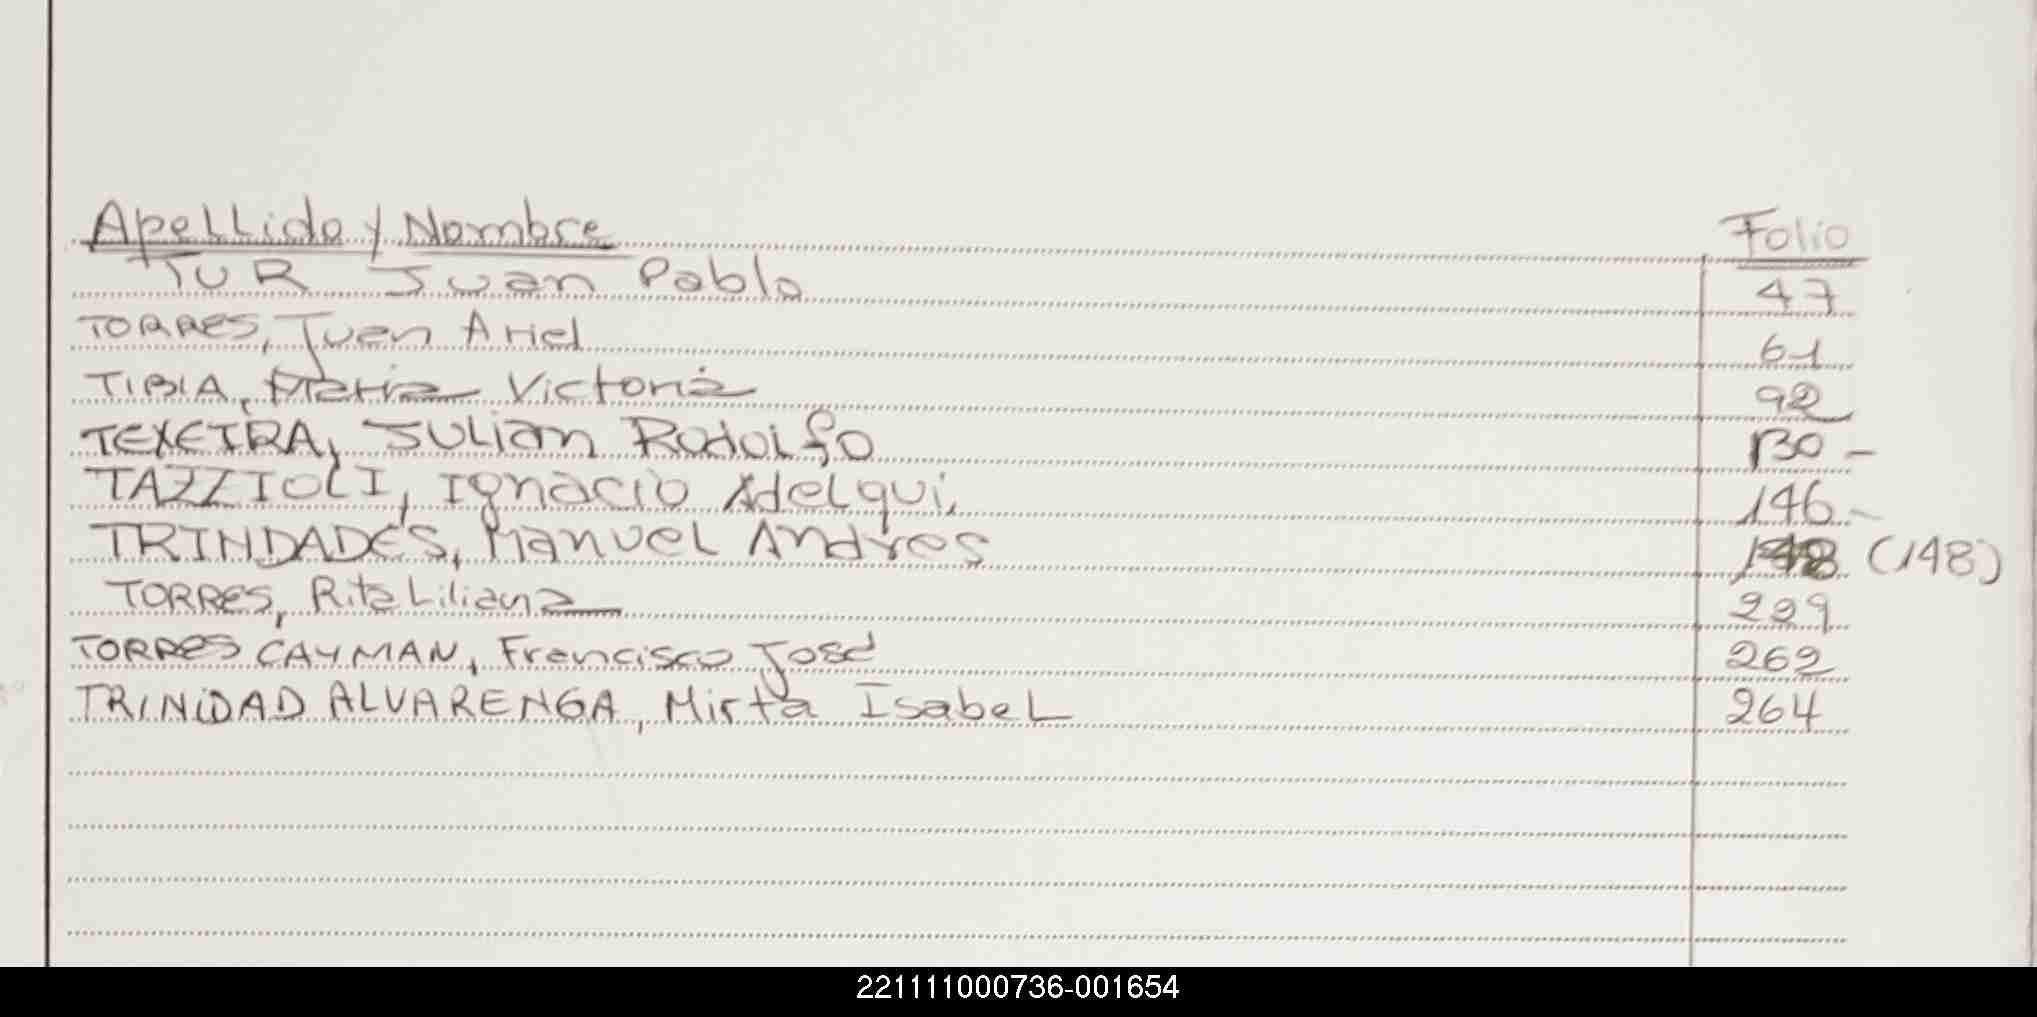 Apellido y Nombre Folio
TUR Juan Pablo 47
TORRES, Juan Ariel 61
TIBIA, Maria Victoria 92
TEXEIRA, Julian Rodolfo 130 -
TAZZIOLI, Ignacio Adelqui, 146 -
TRINDADES, Manuel Andres 148 (148)
TORRES, Rita Liliana 229
TORRES CAYMAN, Francisco José 262
TRINIDAD ALVARENGA, Mirta Isabel 264
221111000736-001654